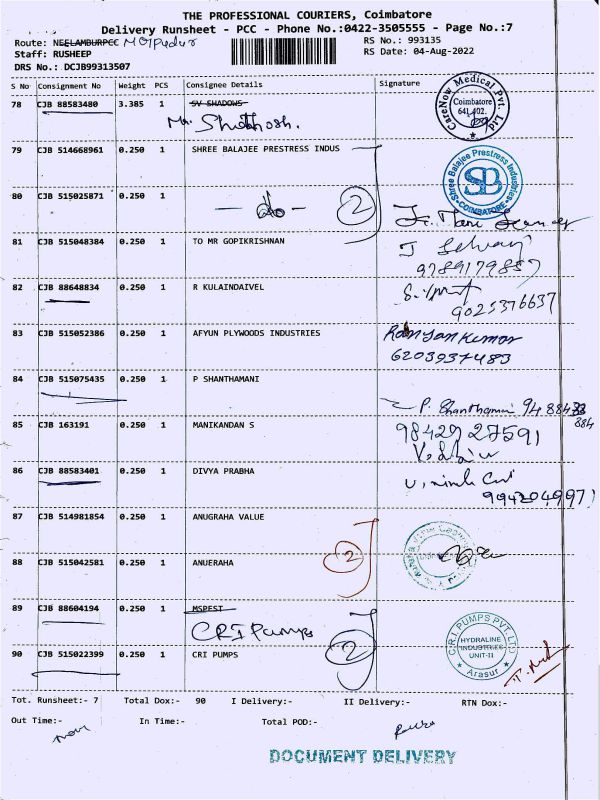 THE PROFESSIONAL COURIERS, Coimbatore
Delivery Runsheet - PCC - Phone No.:0422-3505555 - Page No.:7
Route: NEELAMBURPCC
Staff: RUSHEEP
DRS No.: DCJB99313507
RS No.: 993135
RS Date: 04-Aug-2022
S No Consignment No Weight PCS Consignee Details Signature
78 CJB 88583480 3.385 1 SV SHADOWS
Mr.
CareNow Medical Pvt. Ltd
Coimbatore
641 402.
79 CJB 514668961 0.250 1 SHREE BALAJEE PRESTRESS INDUS
Shree Balajee Prestress Industries
SB
COIMBATORE
80 CJB 515025871 0.250 1
- do - 2
81 CJB 515048384 0.250 1 TO MR GOPIKRISHNAN
9789179857
82 CJB 88648834 0.250 1 R KULAINDAIVEL
9025376637
83 CJB 515052386 0.250 1 AFYUN PLYWOODS INDUSTRIES
Ranjankumar
6203937483
84 CJB 515075435 0.250 1 P SHANTHAMANI
P. Shanthamani
85 CJB 163191 0.250 1 MANIKANDAN S
98429 27591
86 CJB 88583401 0.250 1 DIVYA PRABHA
9942049971
87 CJB 514981854 0.250 1 ANUGRAHA VALUE
2
88 CJB 515042581 0.250 1 ANUERAHA
89 CJB 88604194 0.250 1 MSPEST
CRI Pumps
2
C.R.I. PUMPS PVT. LTD
HYDRALINE
INDUSTRIES
UNIT-II
Arasur
90 CJB 515022399 0.250 1 CRI PUMPS
Tot. Runsheet:- 7 Total Dox:- 90 I Delivery:- II Delivery:- RTN Dox:-
Out Time:- In Time:- Total POD:-
DOCUMENT DELIVERY